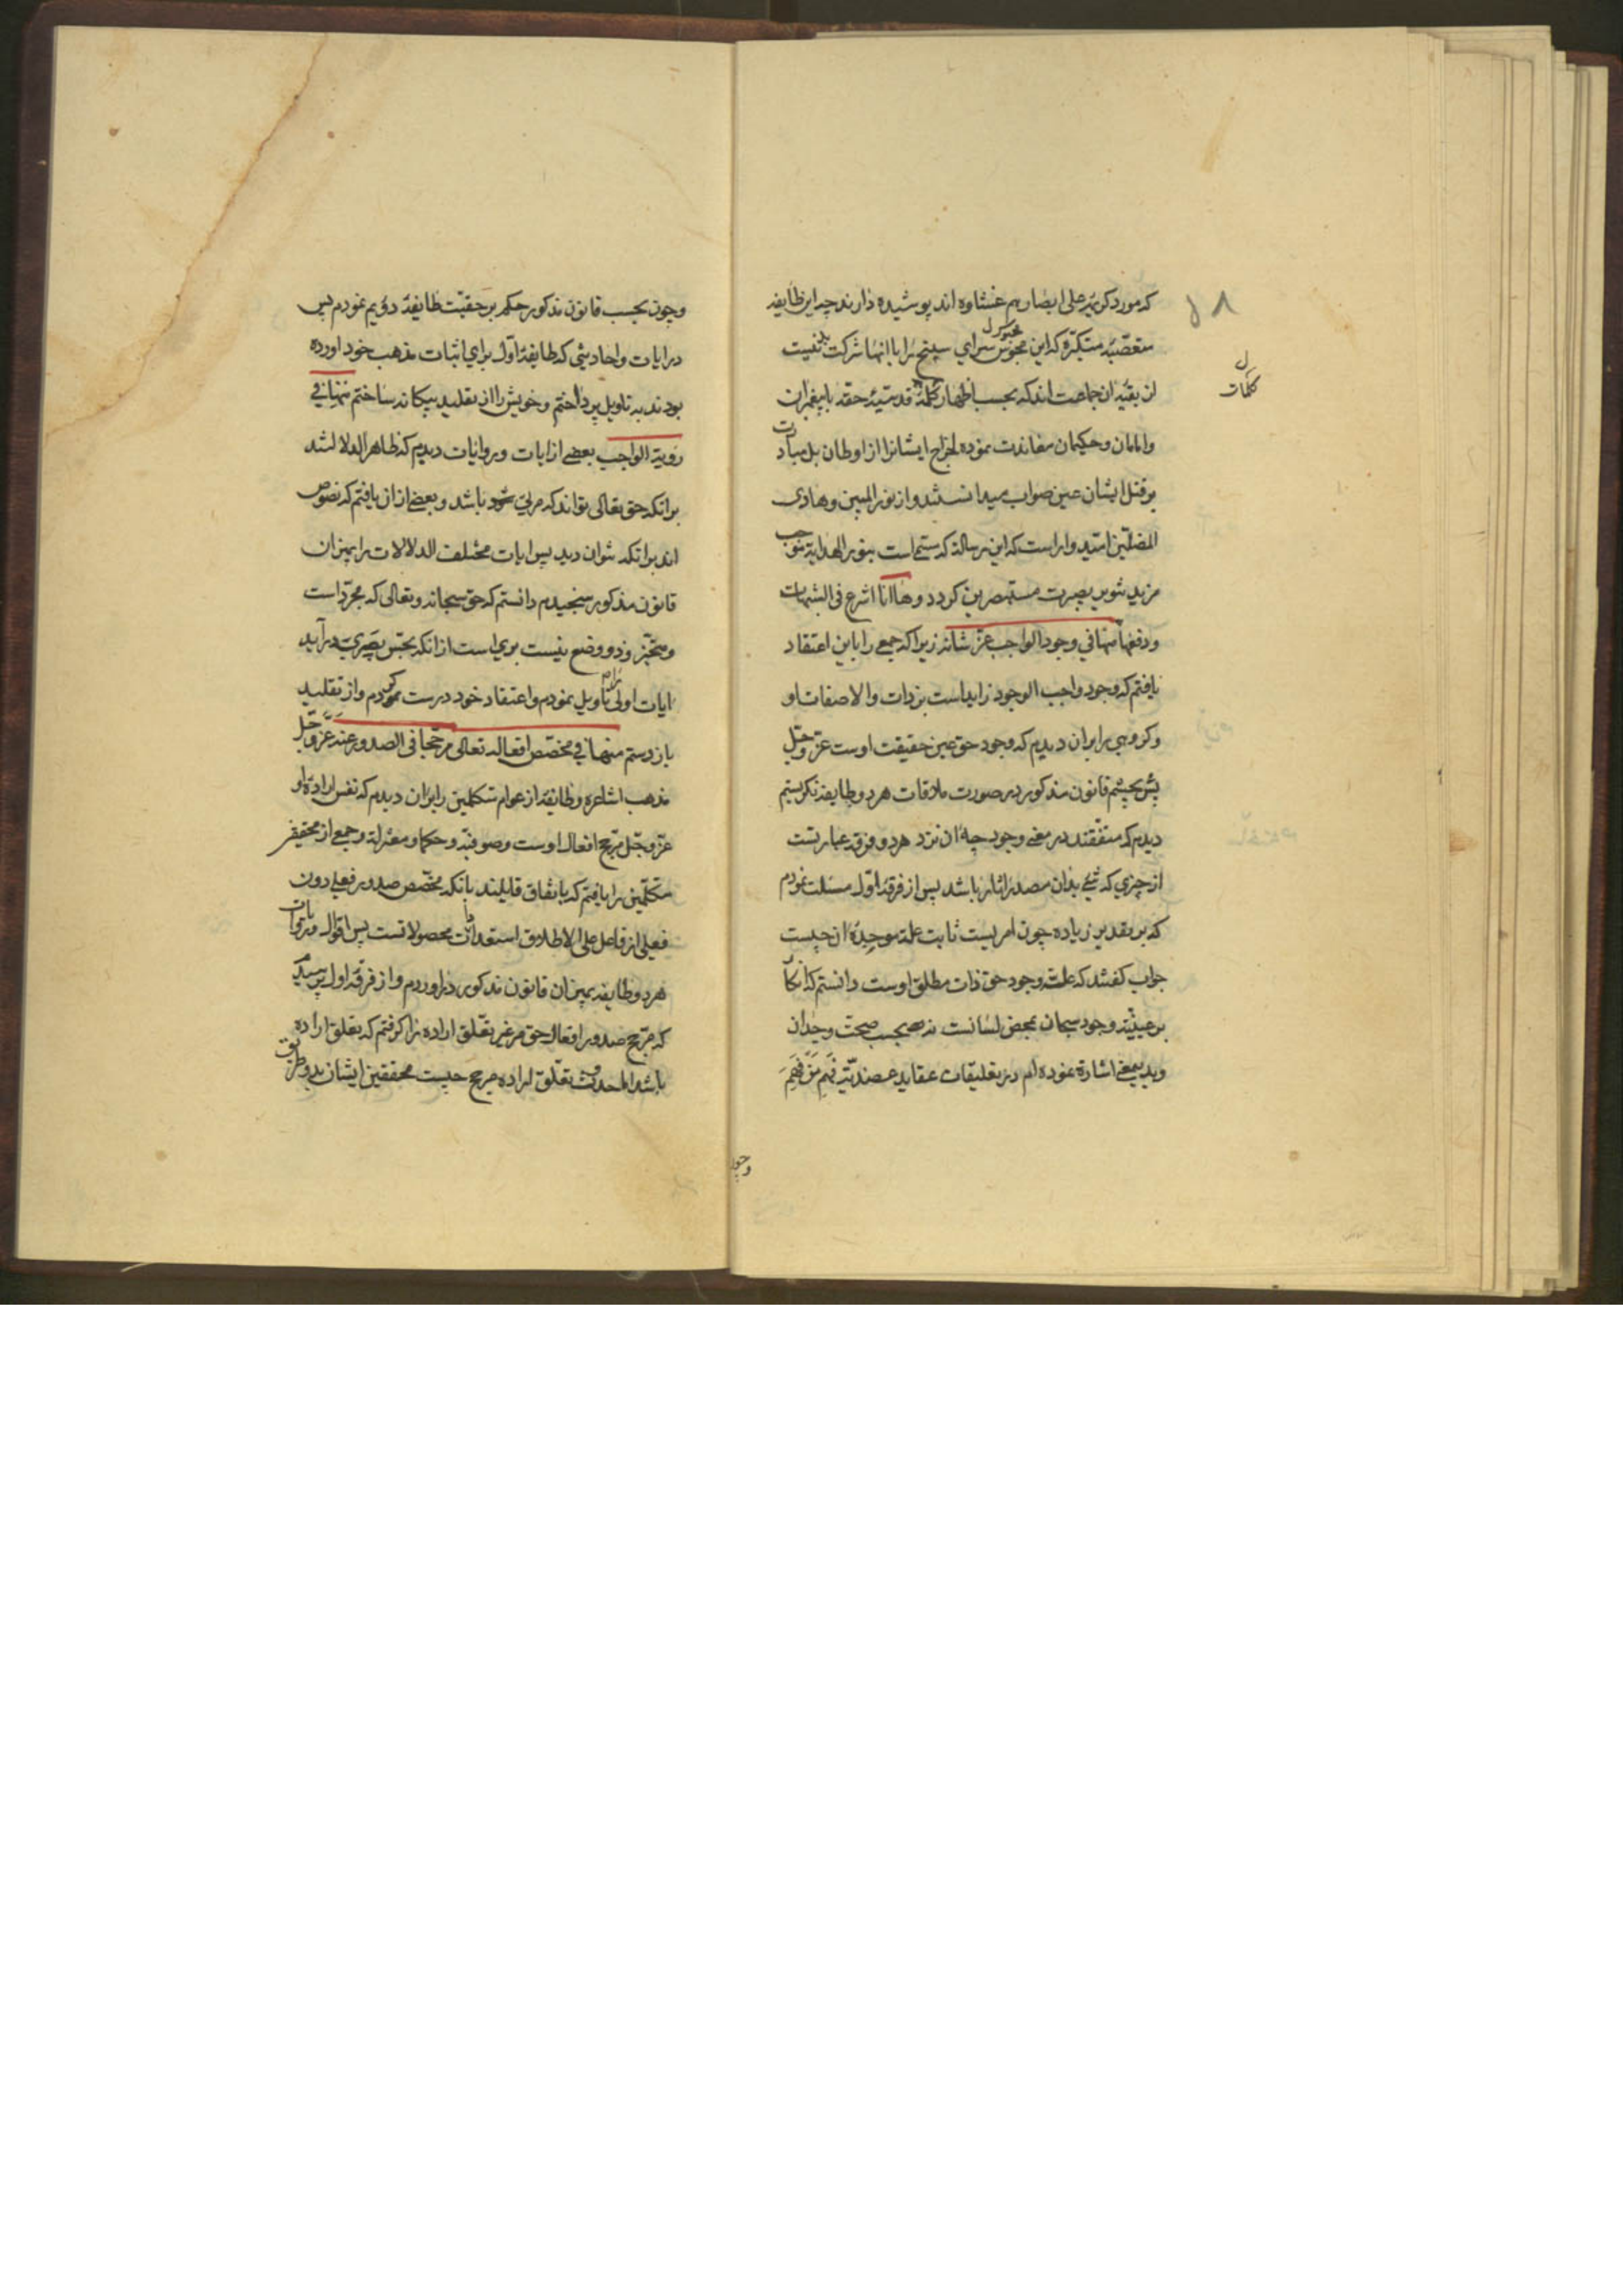 که مورد کریمه علی ابصارهم غشاوه اند پوشیده دارند چه این طایفه
متعصبه متکبره که این مجوس سرای سپنج را با انها شرکت نیست
از بقیه ان جماعت اند که بحسب اظهار کلمه قدسیه حقه با پیغمبران
کلمات
و امامان و حکیمان معاندت نموده اخراج ایشانرا از اوطان بل مبادرت
بر قتل ایشان عین صواب میدانستند و از نور المبین و هادی
المضلین امید وار است که این رساله که مسمی است بنور الهدایة موجب
مزید تنویر بصیرت مستبصرین کردد وها انا اشرع فی الشبهات
ودفعها منها فی وجود الواجب عز شانه زیرا که جمعی را باین اعتقاد
یافتم که وجود واجب الوجود زاید است بر ذات والا صفات او
و کروهی را بران دیدم که وجود حق عین حقیقت اوست عز وجل
پس بچشم قانون مذکور در صورت ملاقات هر دو طایفه نکریستم
دیدم که متفقند در معنی وجود چه ان نزد هر دو فرقه عبارتست
از چیزی که شئ بدان مصدر اثار باشد پس از فرقه اول مسئلت نمودم
که بر تقدیر زیاده چون امریست ثابت علة موجده ان چیست
جواب کفتند که علت وجود حق ذات مطلق اوست دانستم که انکار
بر عینیة وجود سبحان بمحض لسانست نه بحسب صحت وجدان
وبدین معنی اشارة نموده ام در تعلیقات عقاید عضدیة فَهِمَ مَنْ فَهِمَ
وچون
وچون بحسب قانون مذکور حکم بر حقیت طایفه دویم نمودم پس
در ایات و احادیثی که طایفه اول برای اثبات مذهب خود اورده
بودند به تاویل پرداختم و خویش را از تقلید بیکانه ساختم منها فی
رویة الواجب بعضی از ایات و روایات دیدم که ظاهر الدلالتند
برانکه حق تعالی تواند که مرئی شود باشد و بعضی از ان یافتم که نصوص
اند برانکه نتوان دید پس ایات مختلف الدلالات را بمیزان
قانون مذکور سنجیدم دانستم که حق سبحانه و تعالی که مجرد است
و متحیز و ذو وضع نیست بری است از انکه بحس بصری در آید
ایات اولی را تاویل نمودم و اعتقاد خود درست کردم و از تقلید
باز رستم منها فی مخصص افعاله تعالی مرجحا فی الصدور عنه عز وجل
مذهب اشاعره و طایفه از عوام متکلمین را بران دیدم که نفس اراده او
عز وجل مرجح افعال اوست وصوفیه و حکما و معتزله و جمعی از محققین
متکلمین را یافتم که باتفاق قایلند بانکه مخصص صدور فعلی دون
فعلی از فاعل علی الاطلاق استعدادات محصولاتست پس اقوال و روایات
هر دو طایفه بمیزان قانون مذکور در اوردم و از فرقه اول پرسیدم
که مرجح صدور افعال حق مر غیر تعلق اراده را کرفتم که تعلق اراده
باشد اما حدوث تعلق اراده مرجح چیست محققین ایشان بدو طریق